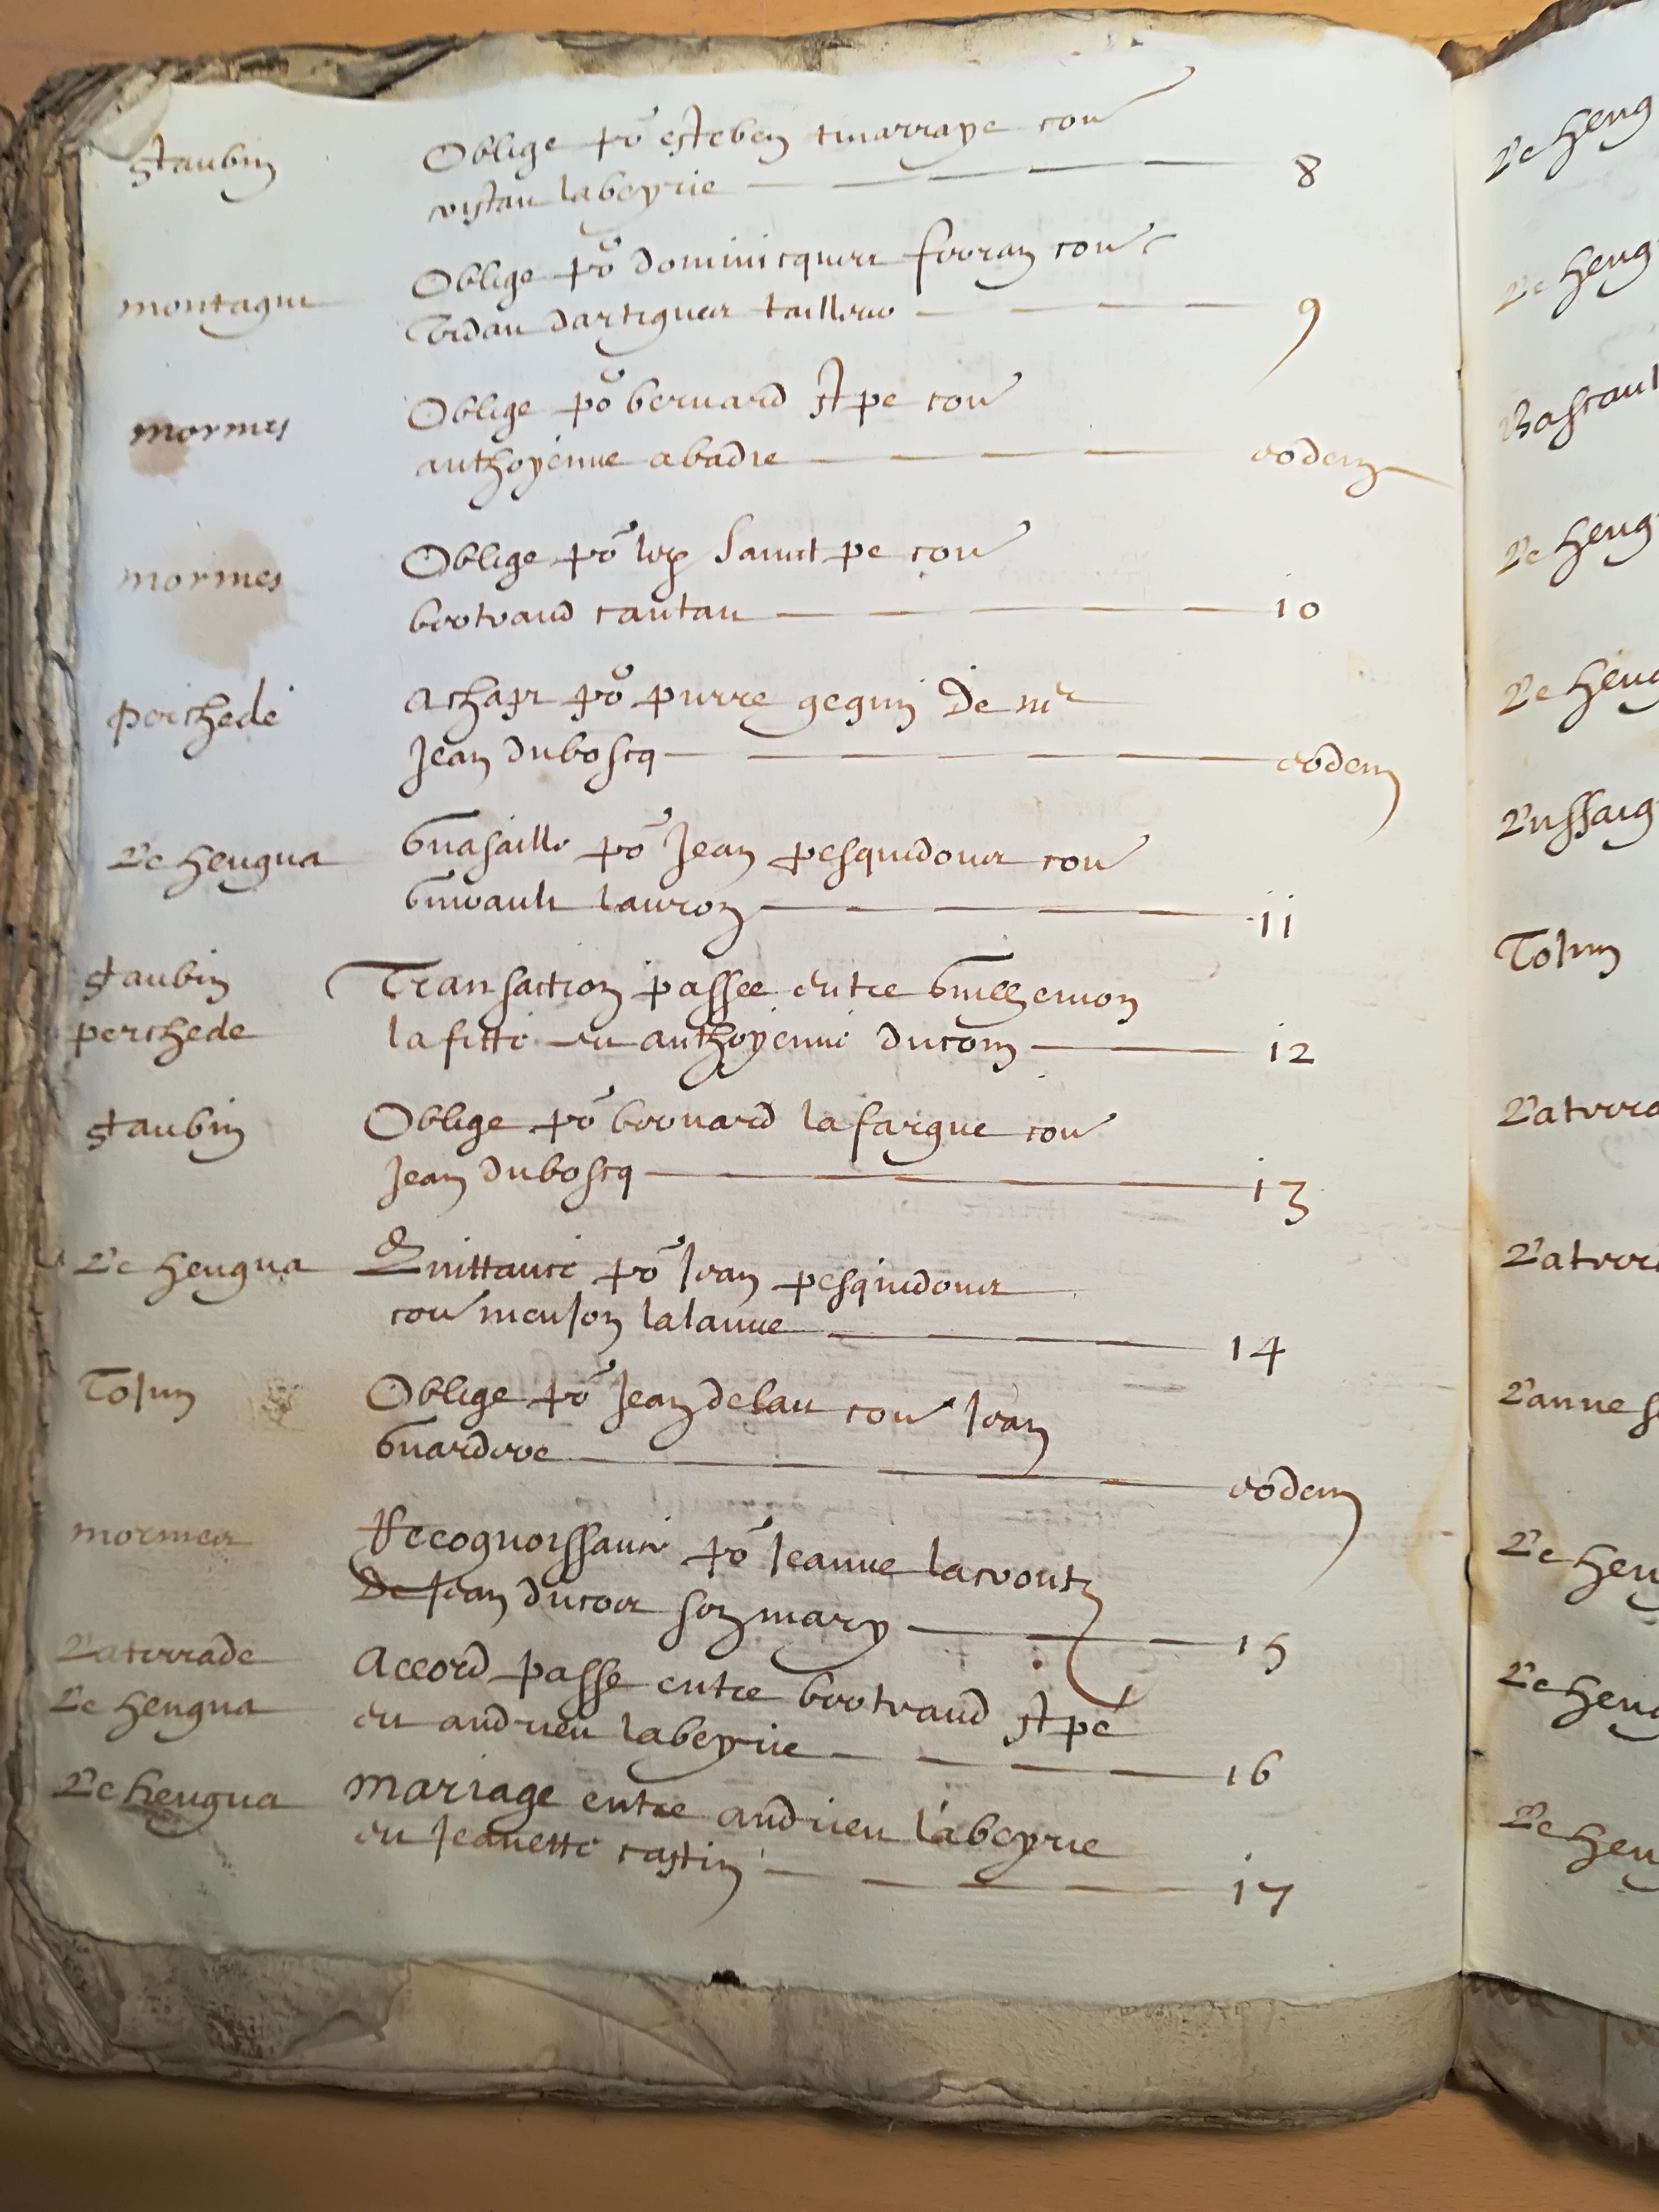 St aubin Oblige po esteben marraye con
costan labeyrie 8
montagut Oblige po dominicques fooran con
Jordan dartigues tailleur 9
mormes Oblige po bernard St pe con
anthoyenne abadie eodem
mormes Oblige po Sainct pe con
bertrand cantau 10
perchede achapt po pierre gegun De mr
Jean duboscq eodem
Le heugua Guasaille po Jean pesquidoux con
Guirault lauron 11
St aubin Transaction passee entre Guilhemon
perchede lafitte et anthoyenne ducom 12
St aubin Oblige po bernard lafargue con
Jean duboscq 13
Le heugua Quittance po Jean pesquidoux
con menjon lalanne 14
Tojun Oblige po Jean delau con Jean
Guardere eodem
mormes Recognoissance po Jeanne lacroutz
De Jean ducor son mary 15
Laterrade accord passe entre bertrand St pe
Le heugua et andrieu labeyrie 16
Le heugua mariage entre andrieu labeyrie
et Jeanette castin 17
Le heug
Le heug
Bascaul
Le heug
Le heug
Lussaig
Tojun
Laterra
Laterra
Lanne s
Le heu
Le heug
Le heu